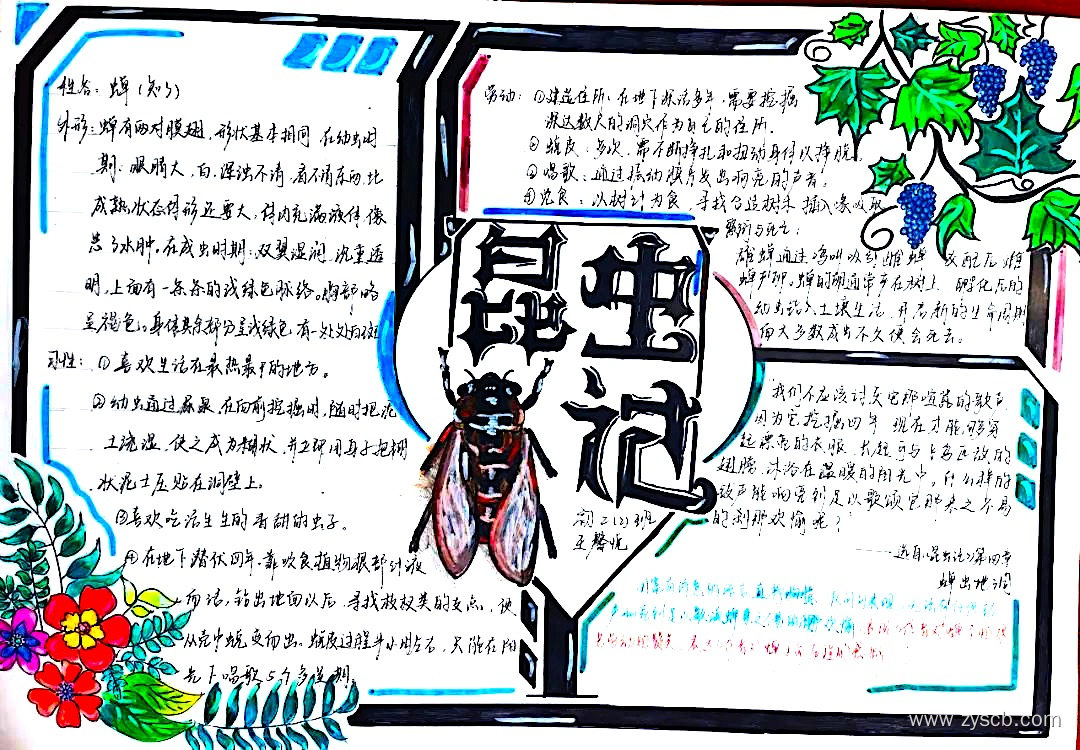 姓名：蝉（知了）
外形：蝉有两对膜翅，形状基本相同，在幼虫时
期：眼睛大，白，浑浊不清，看不清东西，比
成熟状态体形还要大，体内充满液体像
患了水肿。在成虫时期：双翼湿润，沉重透
明，上面有一条条的浅绿色脉络。胸部略
呈褐色。身体其余部分呈浅绿色，有一处处的斑
习性：①喜欢生活在最热最干的地方。
②幼虫通过尿尿，在向前挖掘时，随时把泥
土浇湿，使之成为糊状，并立即用身子把糊
状泥土压贴在洞壁上。
③喜欢吃活生生的香甜的虫子。
④在地下潜伏四年，靠吸食植物根部汁液
而活，钻出地面以后，寻找枝杈类的支点，便
从壳中蜕变而出。蜕皮过程半小时左右，只能在阳
光下唱歌5个多星期
劳动：①建造住所：在地下状活多年，需要挖掘
深达数尺的洞穴作为自己的住所。
②蜕皮：多次，需不断挣扎和扭动身体以挣脱。
③唱歌：通过振动膜片发出响亮的声音。
④觅食：以树汁为食，寻找合适树木，插入喙吸取
繁衍与死亡：
雄蝉通过鸣叫吸引雌蝉，交配后，雌
蝉产卵。蝉的卵通常产在树上，孵化后的
幼虫钻入土壤生活，开启新的生命周期
而大多数成虫不久便会死去。
昆虫记
初二(2)班
王馨悦
我们不应该讨厌它那喧嚣的歌声
因为它挖掘四年，现在才能够穿
起漂亮的衣服，长起可与飞鸟匹敌的
翅膀，沐浴在温暖的阳光中。什么样的
歌声能响亮到足以歌颂它那来之不易
的刹那欢愉呢？
——选自《昆虫记》第四章
蝉出地洞
www.zyscb.com